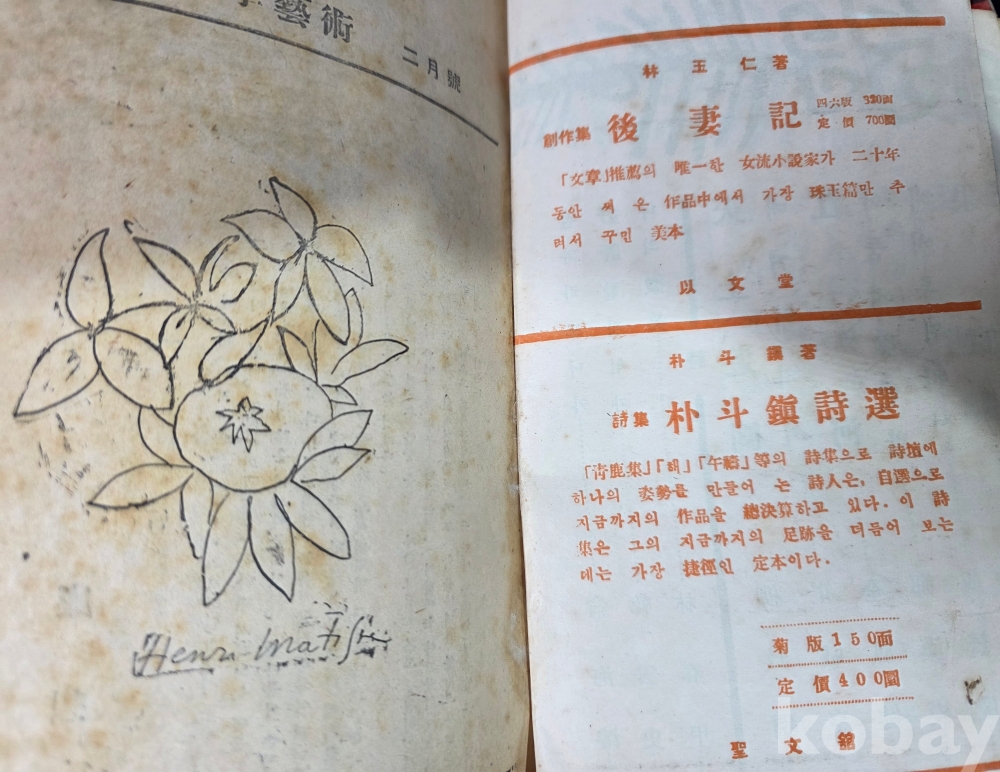 藝術
二月號
Henri Matisse
林玉仁著
創作集 後妻記 四六版 320面
定價 700圜
「文章」推薦의 唯一한 女流小說家가 二十年
동안 써 온 作品中에서 가장 珠玉篇만 추
려서 꾸민 美本
以文堂
朴斗鎭著
詩集 朴斗鎭詩選
「靑鹿集」「해」「午禱」等의 詩集으로 詩壇에
하나의 姿勢를 만들어 는 詩人은, 自選으로
지금까지의 作品을 總決算하고 있다. 이 詩
集은 그의 지금까지의 足跡을 더듬어 보는
데는 가장 捷徑인 定本이다.
菊版150面
定價400圜
聖文舘
kobay